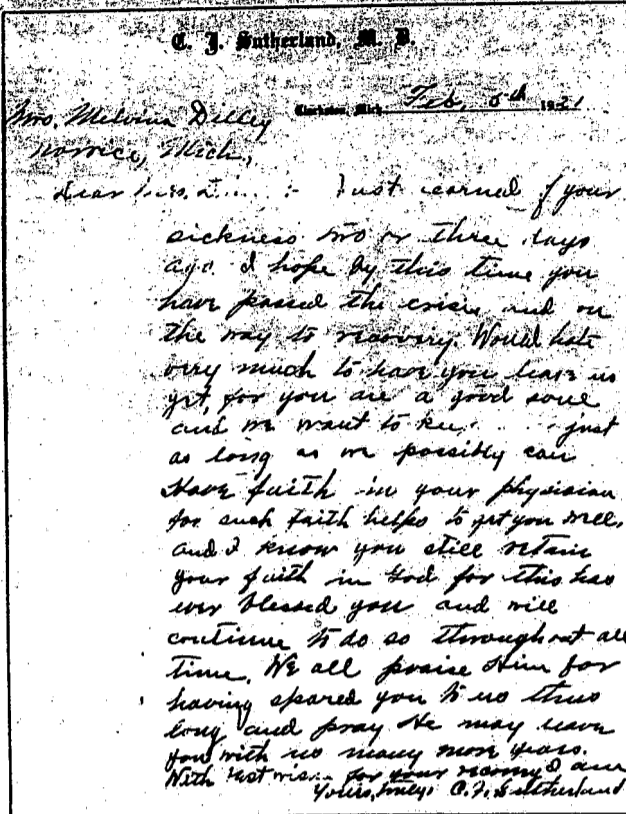 C. J. Sutherland, M. D.
Clarkston, Mich. Feb. 5th 1921
Mrs. Melvina Dilley
Mich.,
Dear Mrs. D..... :- Just learned of your
sickness two or three days
ago. I hope by this time you
have passed the crisis and on
the way to recovery. Would hate
very much to have you leave us
yet, for you are a good soul
and we want to kee. .... just
as long as we possibly can
Have faith in your physician
for such faith helps to get you well,
and I know you still retain
your faith in God for this has
ever blessed you and will
continue to do so throughout all
time. We all praise Him for
having spared you to us thus
long and pray He may leave
you with us many more years.
With best wis... for your recovery I am
Yours, truly, C. J. Sutherland